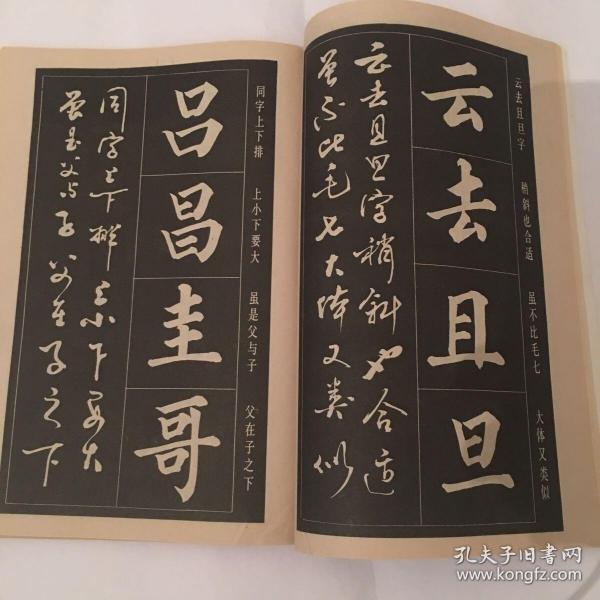 云去且旦字 稍斜也合适 虽不比毛七 大体又类似
云
去
且
旦
云去且旦字稍斜也合适
虽不比毛七大体又类似
同字上下排 上小下要大 虽是父与子 父在子之下
吕
昌
圭
哥
同字上下排上小下要大
虽是父与子父在子之下
孔夫子旧书网
www.kongfz.com